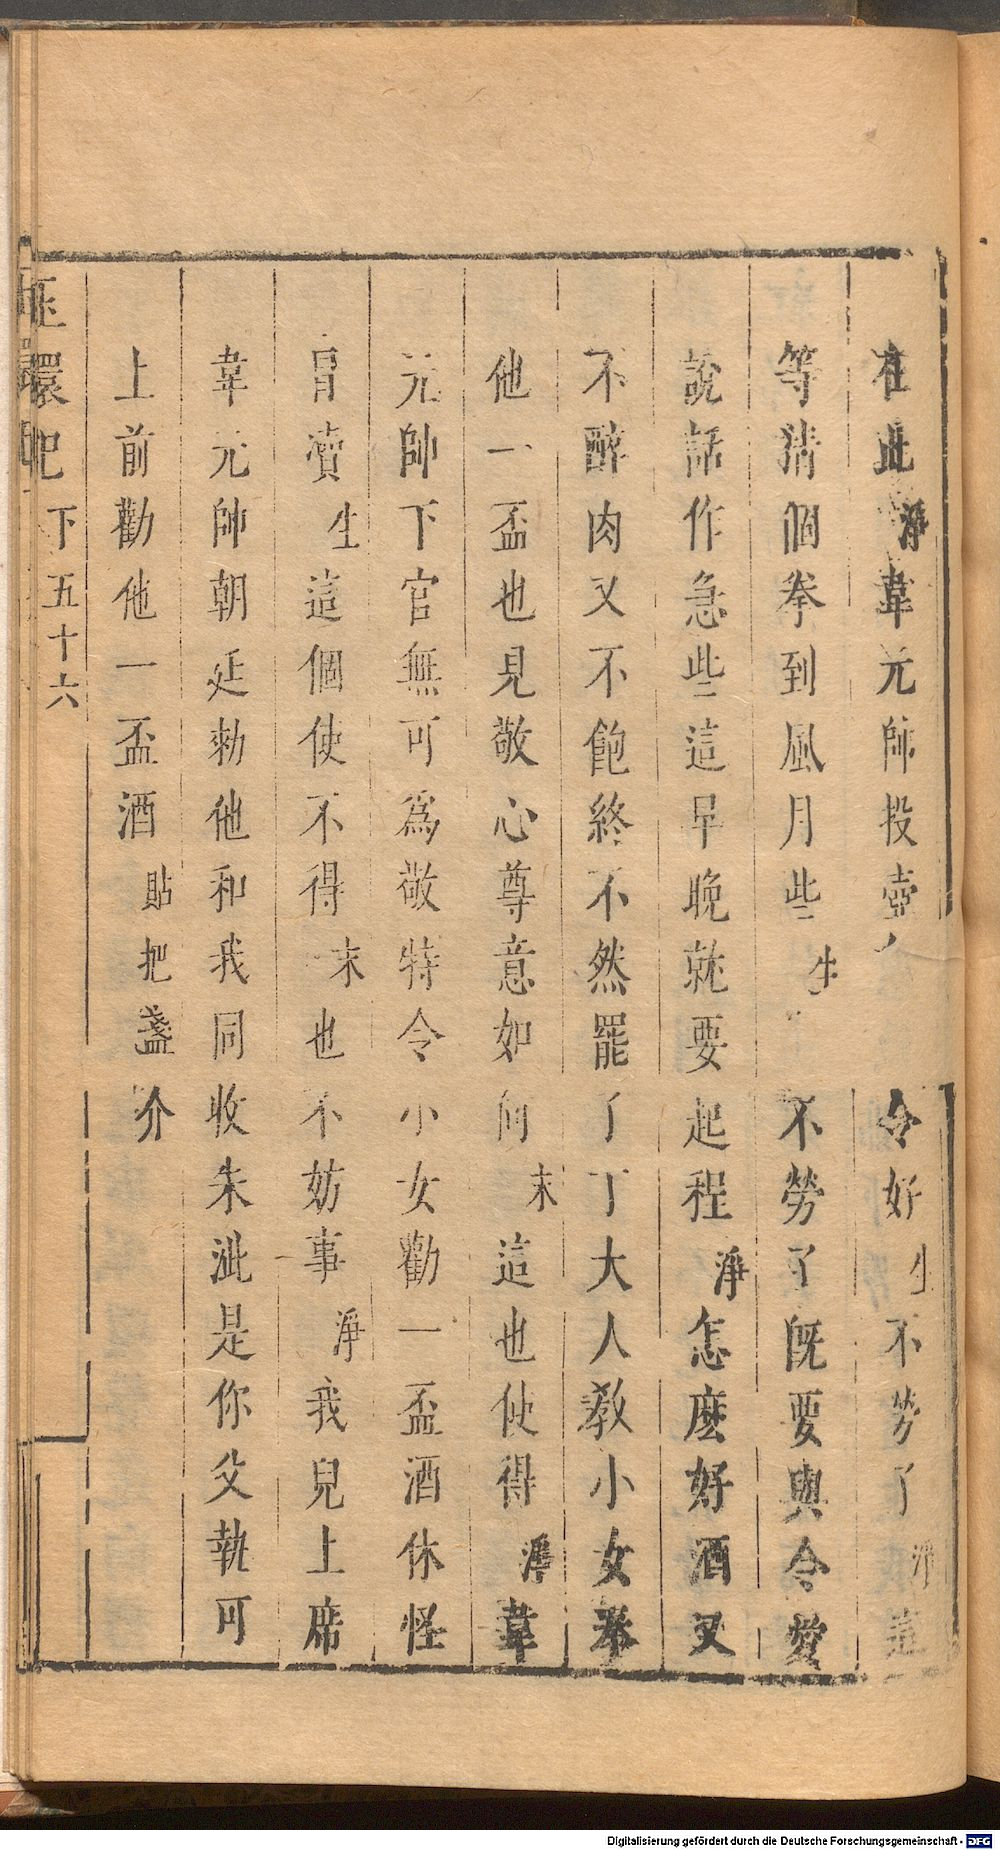 在此淨韋元帥投壺令好生不勞了淨這
等猜個拳到風月些生不勞了旣要與令愛
說話作急些這早晚就要起程淨怎麽好酒又
不醉肉又不飽終不然罷了丁大人敎小女奉
他一盃也見敬心尊意如何末這也使得淨韋
元帥下官無可爲敬特令小女勸一盃酒休怪
冒瀆生這個使不得末也不妨事淨我兒上席
韋元帥朝廷勑他和我同收朱泚是你父執可
上前勸他一盃酒貼把盞介
玉環記下五十六
Digitalisierung gefördert durch die Deutsche Forschungsgemeinschaft - DFG